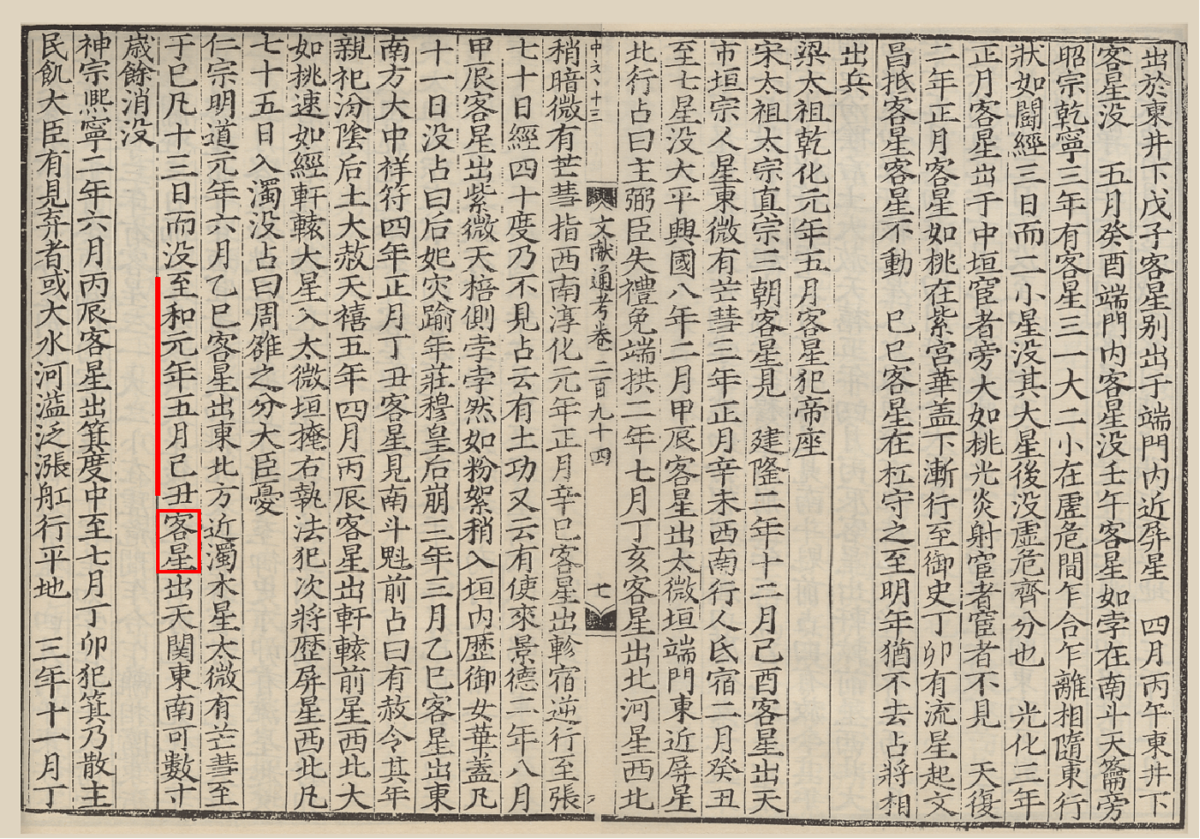 出於東井下戊子客星别出于端門内近屏星　四月丙午東井下
客星没　五月癸酉端門内客星没壬午客星如孛在南斗天籥旁
昭宗乾寧三年有客星三一大二小在虚危間乍合乍離相隨東行
狀如鬭經三日而二小星没其大星後没虚危齊分也　光化三年
正月客星出于中垣宦者旁大如桃光炎射宦者宦者不見　天復
二年正月客星如桃在紫宫華盖下漸行至御史丁卯有流星起文
昌抵客星客星不動　巳巳客星在杠守之至明年猶不去占將相
出兵
梁太祖乾化元年五月客星犯帝座
宋太祖太宗真宗三朝客星見　建隆二年十二月己酉客星出天
市垣宗人星東微有芒彗三年正月辛未西南行入氐宿二月癸丑
至七星没大平興國八年二月甲辰客星出太微垣端門東近屏星
北行占曰主弼臣失禮免端拱二年七月丁亥客星出北河星西北
文献通考卷二百九十四
七
稍暗微有芒彗指西南淳化元年正月辛巳客星出軫宿逆行至張
七十日經四十度乃不見占云有土功又云有使來景德二年八月
甲辰客星出紫微天棓側孛孛然如粉絮稍入垣内歴御女華蓋凡
十一日没占曰后妃灾踰年莊穆皇后崩三年三月乙巳客星出東
南方大中祥符四年正月丁丑客星見南斗魁前占曰有赦令其年
親祀汾陰后土大赦天禧五年四月丙辰客星出軒轅前星西北大
如桃速如經軒轅大星入太微垣掩右執法犯次將歴屏星西北凡
七十五日入濁没占曰周雒之分大臣憂
仁宗明道元年六月乙巳客星出東北方近濁木星太微有芒彗至
于巳凡十三日而没至和元年五月己丑客星出天関東南可數寸
歳餘消没
神宗熈寧二年六月丙辰客星出箕度中至七月丁卯犯箕乃散主
民飢大臣有見弃者或大水河溢泛漲舡行平地　三年十一月丁